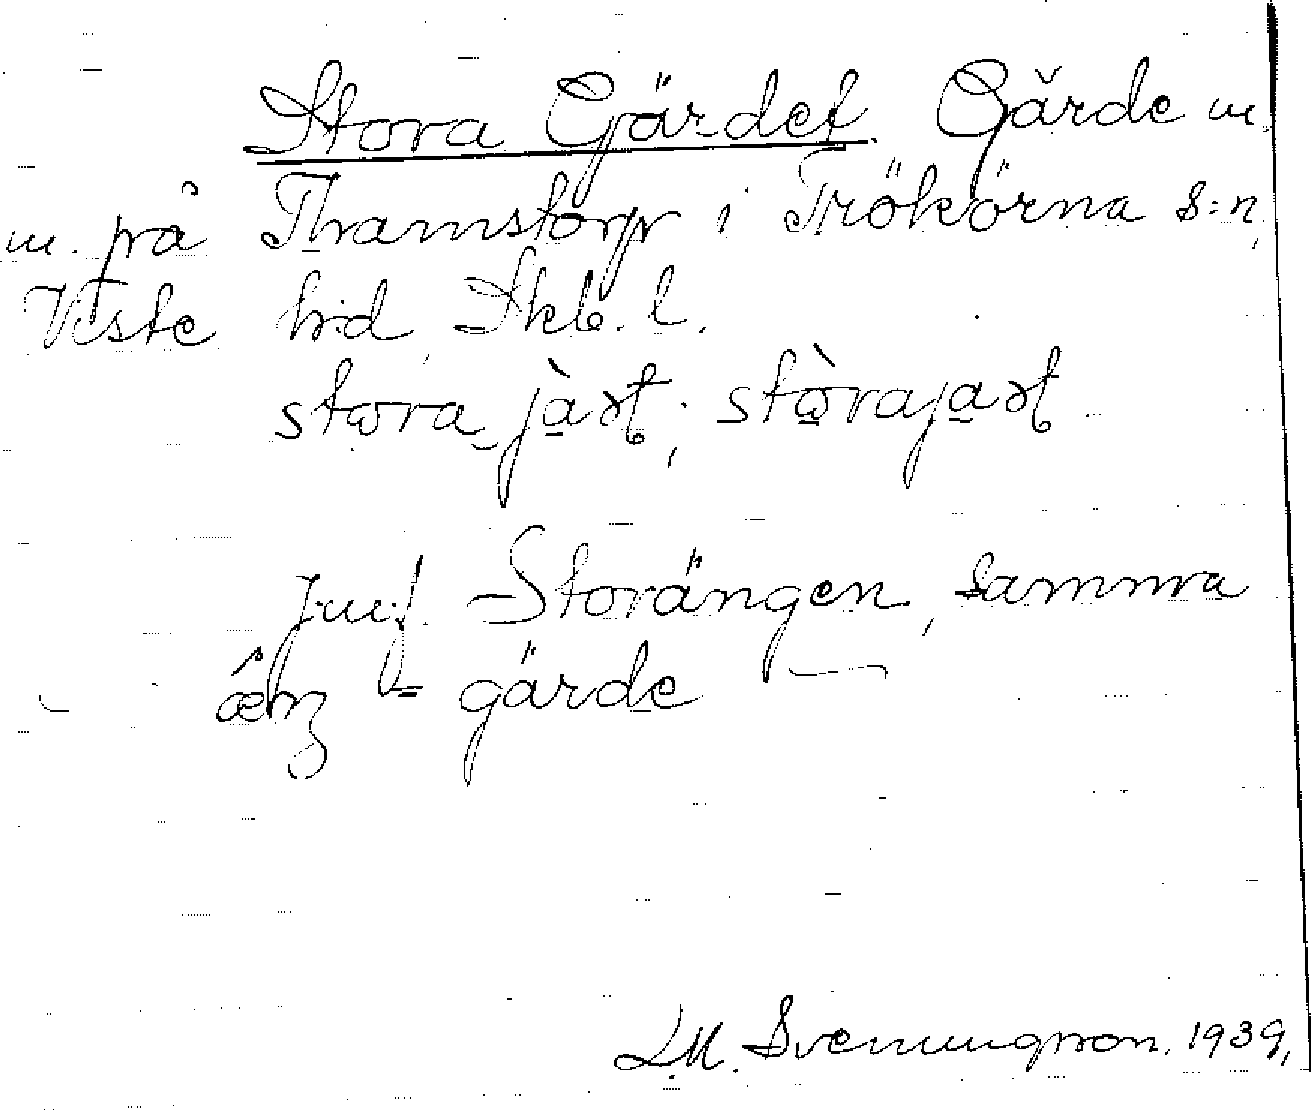 Stora Gärdet. Gärde m.
m. på Thamstorp i Trökörna s:n,
Viste hd, Skb. l.
stora jàrt; stòrajart.
Jmf. Storängen, samma
äng = gärde
L.M. Svenungsson. 1939,